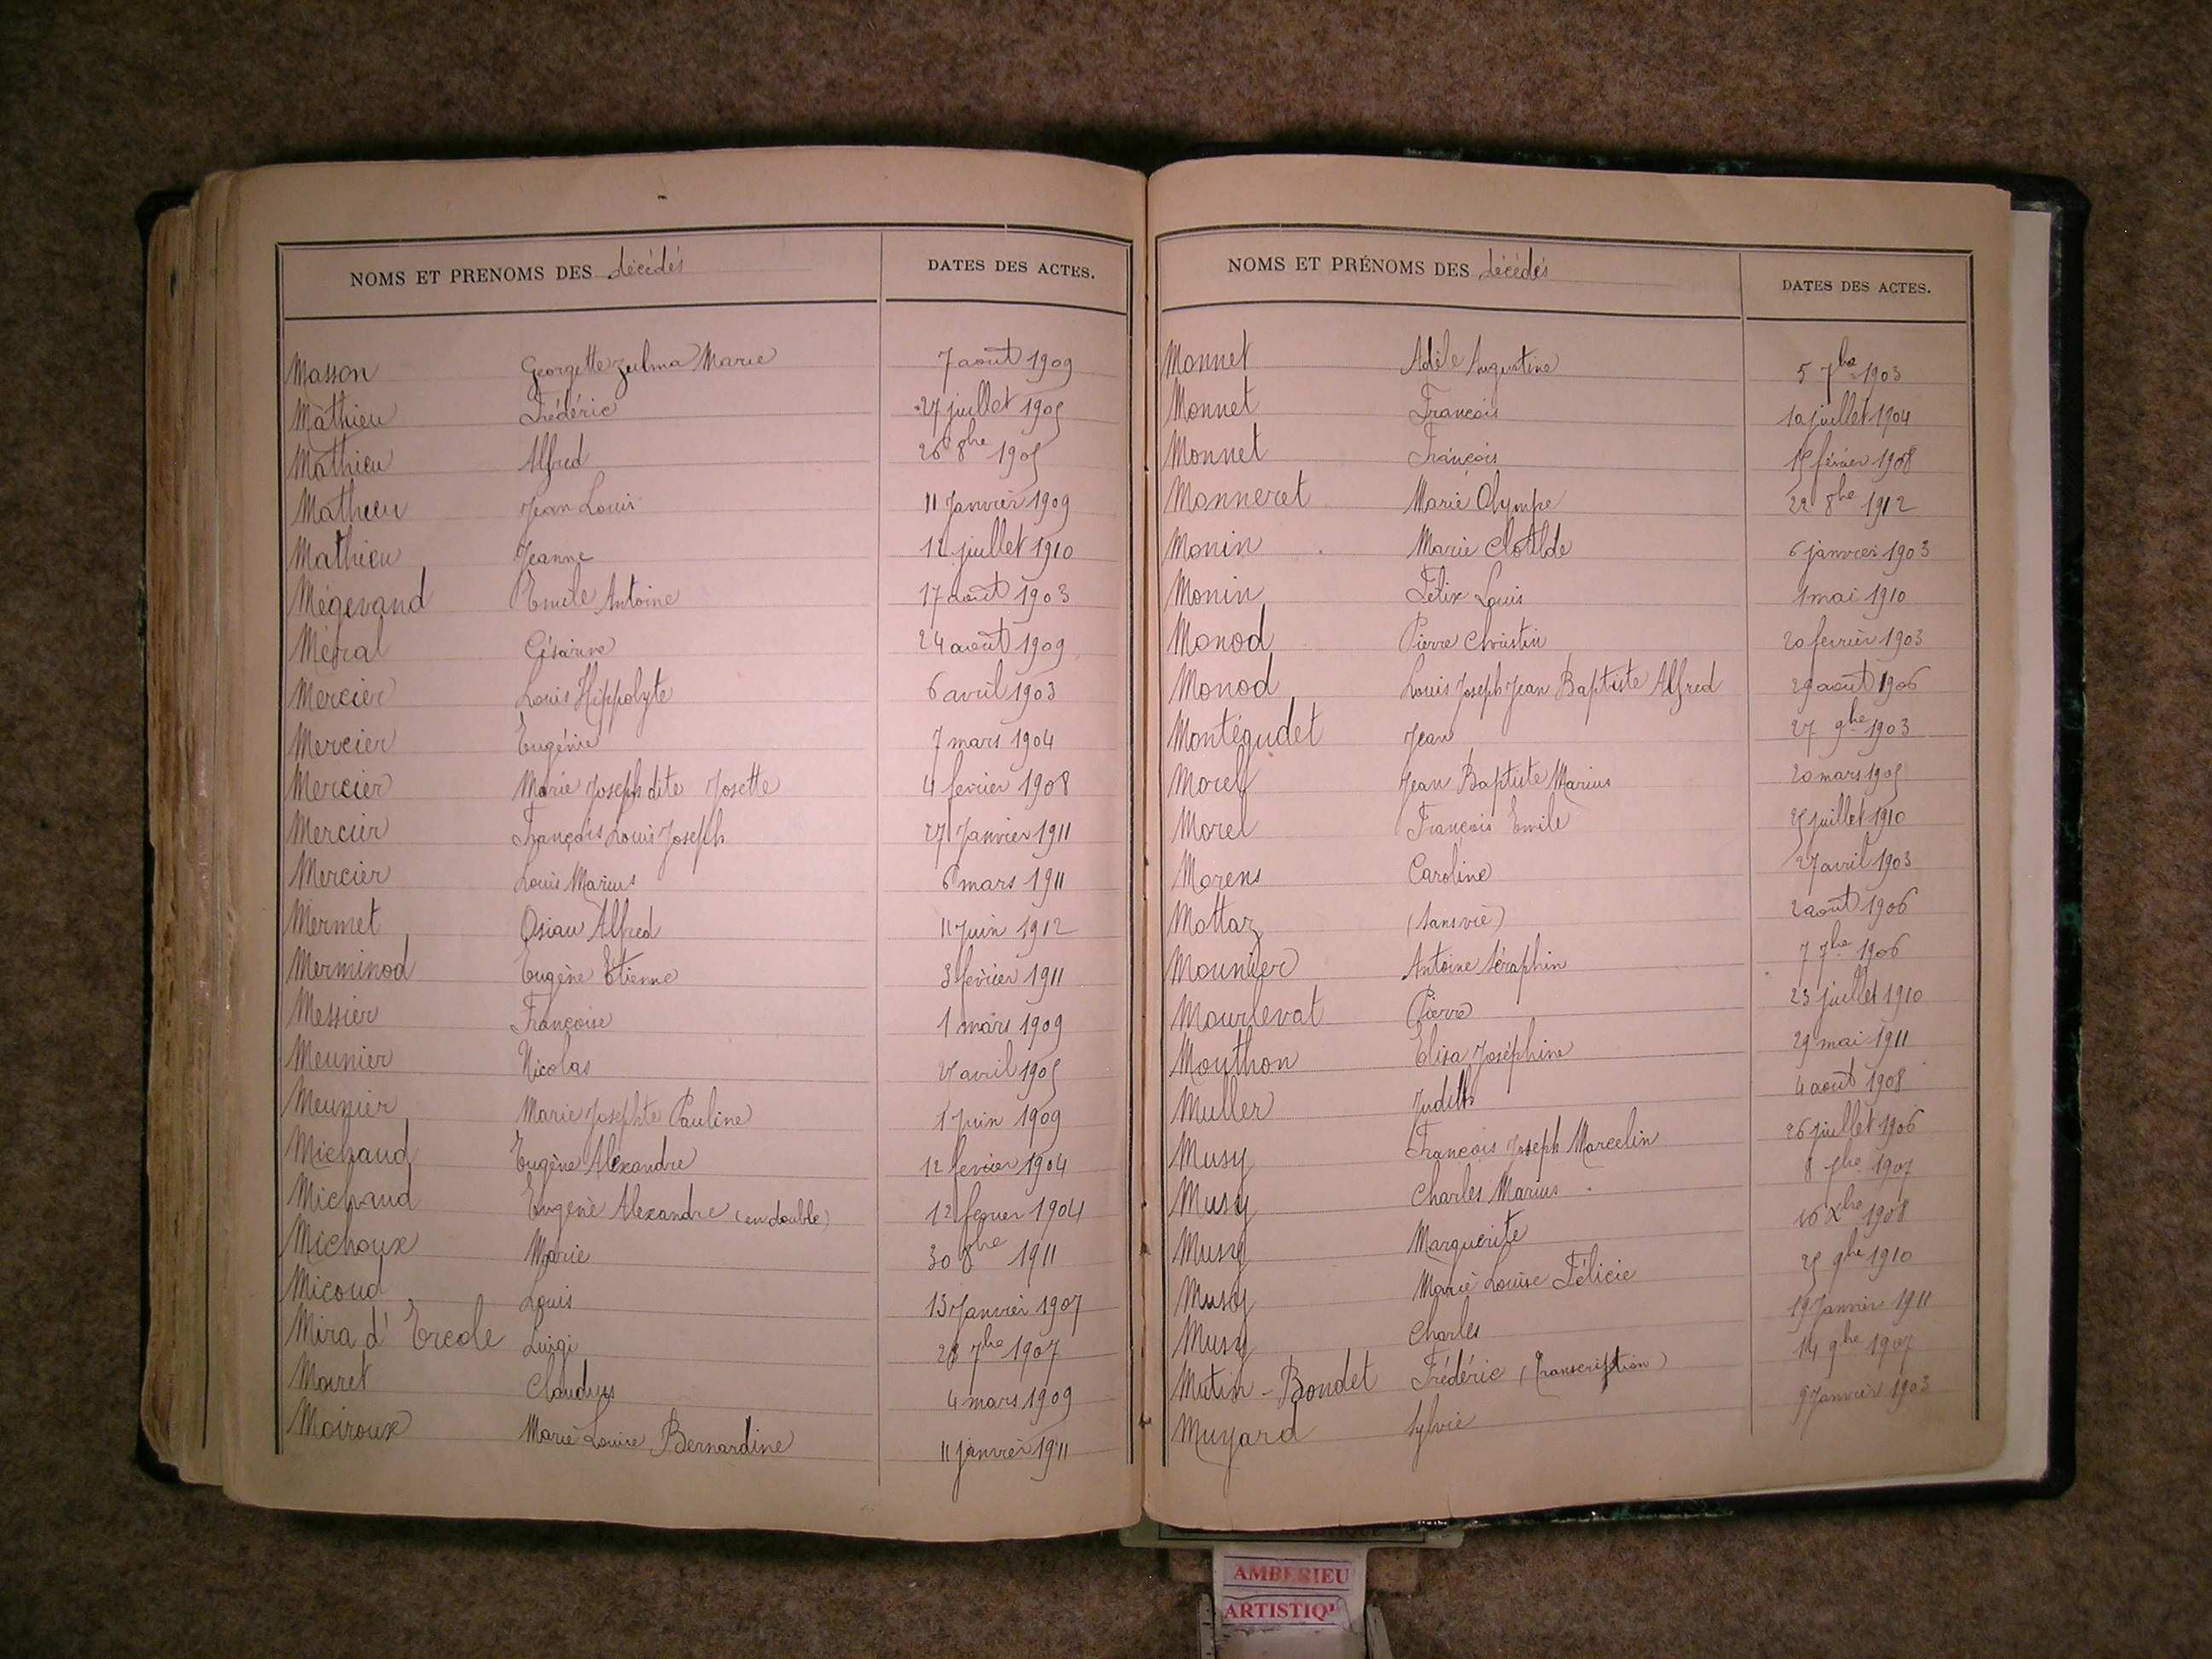 NOMS ET PRENOMS DES décédés DATES DES ACTES.
Masson Georgette Zulma Marie 7 août 1909
Mathieu Frédéric 27 juillet 1905
Mathieu Alfred 26 8bre 1905
Mathieu Jean Louis 11 Janvier 1909
Mathieu Jeanne 12 juillet 1910
Mégevand Emile Antoine 17 août 1903
Méral Césarine 24 août 1909
Mercier Louis Hippolyte 6 avril 1903
Mercier Eugénie 7 mars 1904
Mercier Marie Joseph dite Josette 4 fevrier 1908
Mercier François Louis Joseph 27 Janvier 1911
Mercier Louis Marius 6 mars 1911
Mermet Osiau Alfred 11 Juin 1912
Merminod Eugène Etienne 3 février 1911
Messier Françoise 1 mars 1909
Meunier Nicolas avril 1905
Meunier Marie Josephte Pauline 1 Juin 1909
Michaud Eugène Alexandre 12 fevrier 1904
Michaud Eugène Alexandre (en double) 12 fevrier 1904
Michoux Marie 30 8bre 1911
Micoud Louis 13 Janvier 1907
Mira d'Ercole Luigi 7bre 1907
Moiret Claudius 4 mars 1909
Moiroux Marie Louise Bernardine 11 janvier 1911
NOMS ET PRÉNOMS DES décédés DATES DES ACTES.
Monnet Adèle Augustine 5 7bre 1903
Monnet François 10 juillet 1904
Monnet François 15 février 1908
Monneret Marie Olympe 22 8bre 1912
Monin Marie Clotilde 6 janvier 1903
Monin Félix Louis 1 mai 1910
Monod Pierre Christin 20 fevrier 1903
Monod Louis Joseph Jean Baptiste Alfred 29 août 1906
Montégudet Jean 27 9bre 1903
Morel Jean Baptiste Marius 20 mars 1905
Morel François Emile 25 juillet 1910
Morens Caroline 27 avril 1903
Mottaz (sans vie) 2 août 1906
Mounier Antoine Séraphin 7 7bre 1906
Mourlevat Pierre 23 juillet 1910
Mouthon Elisa Joséphine 29 mai 1911
Muller Judith 4 août 1908
Musy François Joseph Marcelin 26 juillet 1906
Musy Charles Marius 8 7bre 1907
Musy Marguerite 10 Xbre 1908
Musy Marie Louise Félicie 25 9bre 1910
Musy Charles 19 Janvier 1911
Mutin-Bondet Frédéric (Transcription) 14 9bre 1907
Muyard Sylvie 9 Janvier 1903
AMBERIEU
ARTISTIQ